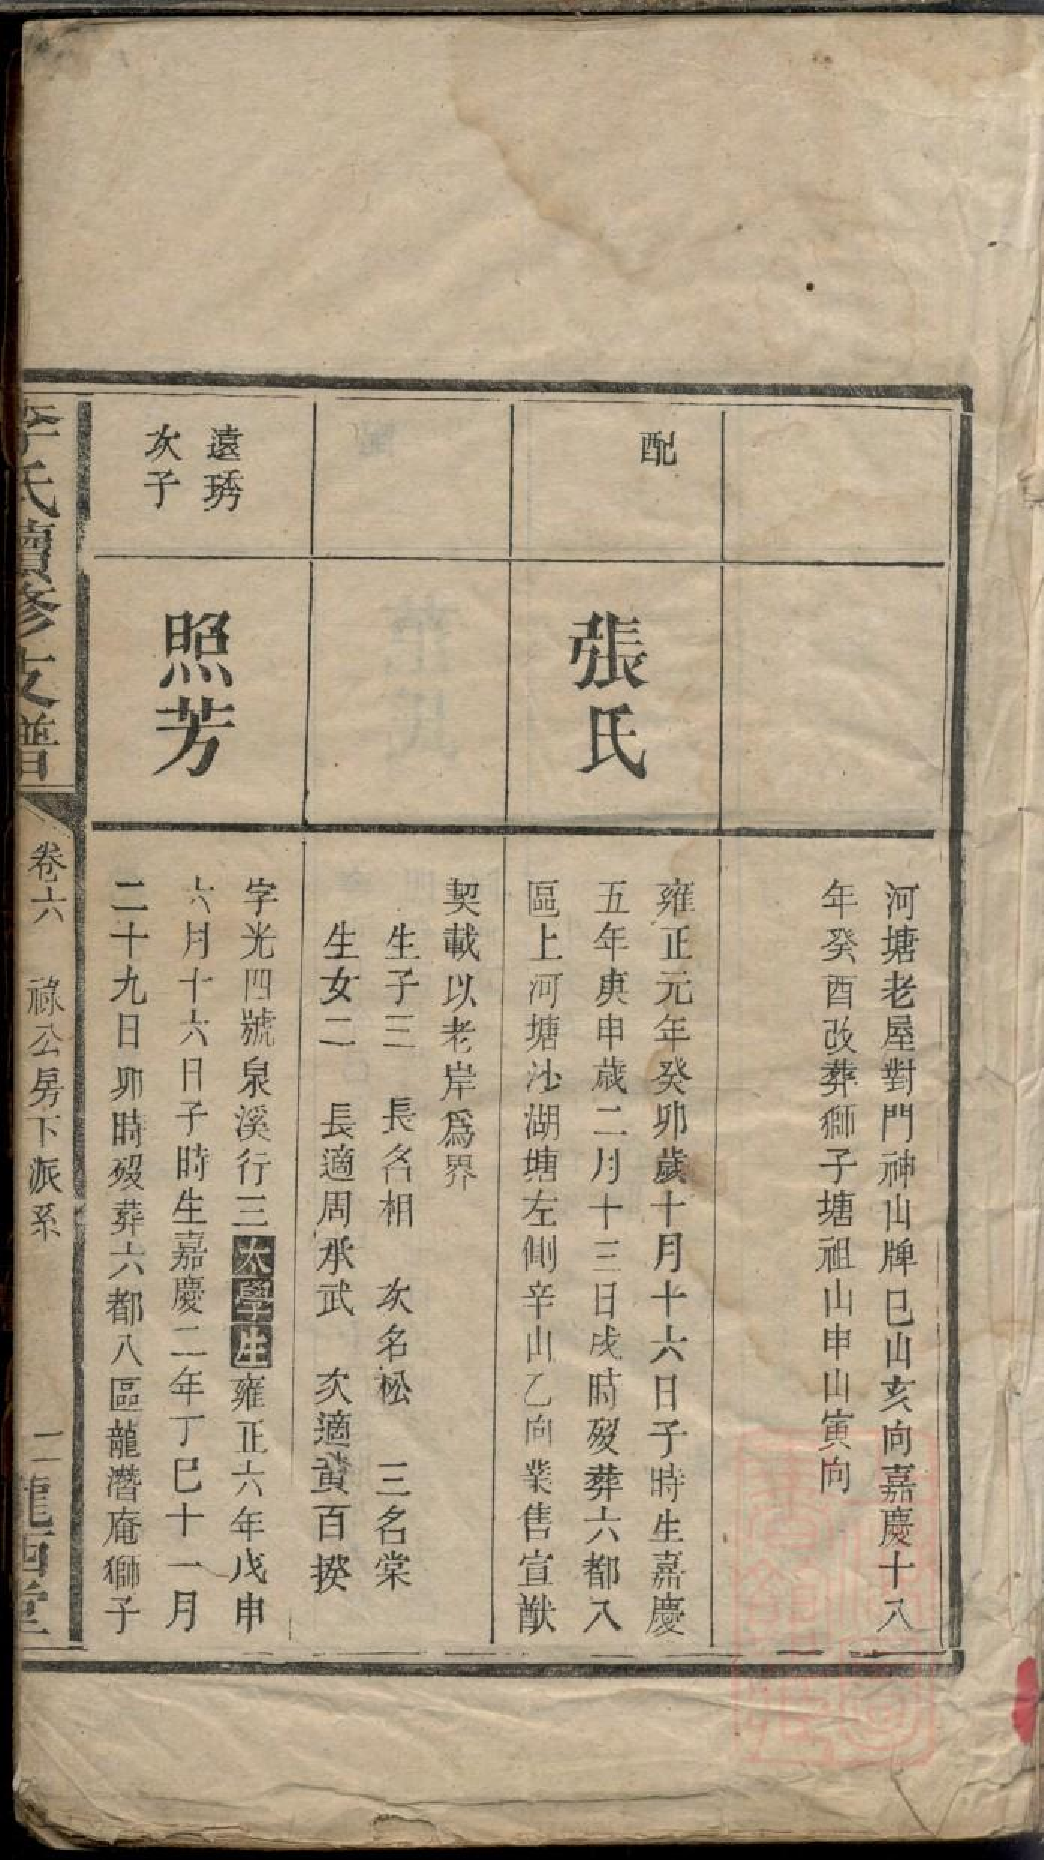 河塘老屋對門神山牌巳山亥向嘉慶十八
年癸酉改葬獅子塘祖山申山寅向
配
張氏
雍正元年癸卯歲十月十六日子時生嘉慶
五年庚申歲二月十三日戌時歿葬六都八
區上河塘沙湖塘左側辛山乙向業售宣猷
契載以老岸爲界
生子三 長名相 次名松 三名棠
生女二 長適周承武 次適黃百揆
遠琇
次子
照芳
字光四號泉溪行三太學生雍正六年戊申
六月十六日子時生嘉慶二年丁巳十一月
二十九日卯時歿葬六都八區龍潛庵獅子
李氏續修支譜
卷六 祿公房下派系
二
堂